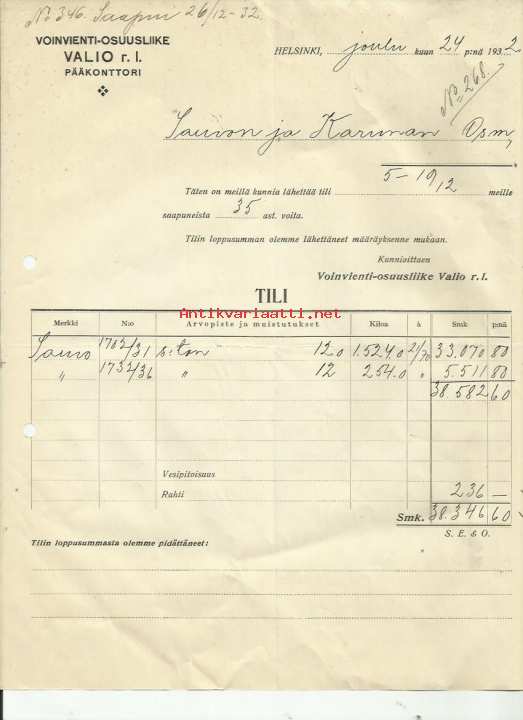 No 346. Saapui 26/12-32.
VOINVIENTI-OSUUSLIIKE
VALIO r. l.
PÄÄKONTTORI
HELSINKI, joulu kuun 24 p:nä 1932
No 268.
Sauvon ja Karunan Osm,
Täten on meillä kunnia lähettää tili 5-19/12 meille
saapuneista 35 ast. voita.
Tilin loppusumman olemme lähettäneet määräyksenne mukaan.
Kunnioittaen
Voinvienti-osuusliike Valio r. l.
TILI
Antikvariaatti.net
Merkki N:o Arvopiste ja muistutukset Kiloa à Smk p:nä
Sauvo 1702/31 s:ton 12.0 1.524.0 21/70 33.070 80
" 1732/36 " 12 254.0 " 5.511 80
38.582 60
Vesipitoisuus
Rahti 236 —
Smk. 38.346 60
S. E. & O.
Tilin loppusummasta olemme pidättäneet: